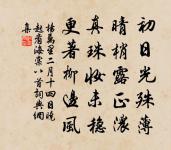 初日光殊薄
晴梢露正濃
真珠妝未穩
更著柳邊風
楊萬里二月十四日曉
起看海棠八首詞典網
集